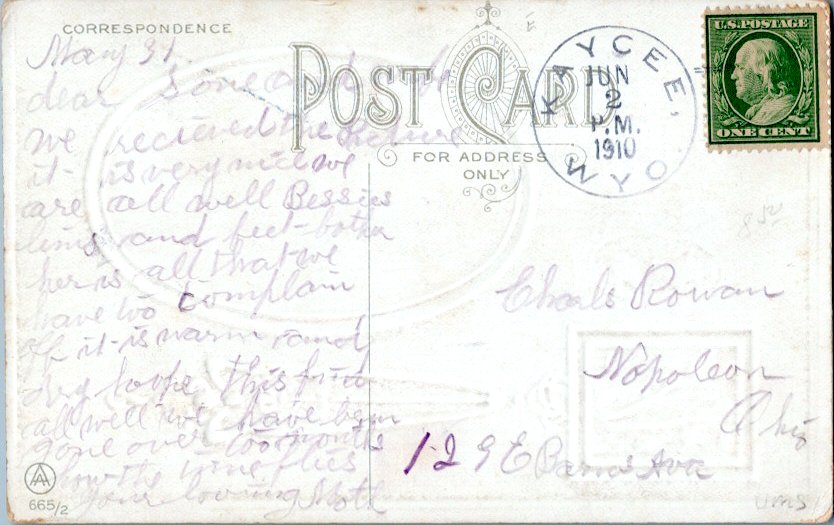 CORRESPONDENCE
POST CARD
FOR ADDRESS
ONLY
KAYCEE,
JUN
2
P.M.
1910
WYO
U.S. POSTAGE
ONE CENT
May 31.
dear
we recieved the Picture
it is very nice we
are all well Bessies
lims and feet bother
her is all that we
have too complain
off it is warm and
dry hope this find
all well we have been
gone over too months
how the time flies
your loving Moth
Charls Rowan
Napoleon
Ohio
129 E Barnes Ave
665/2